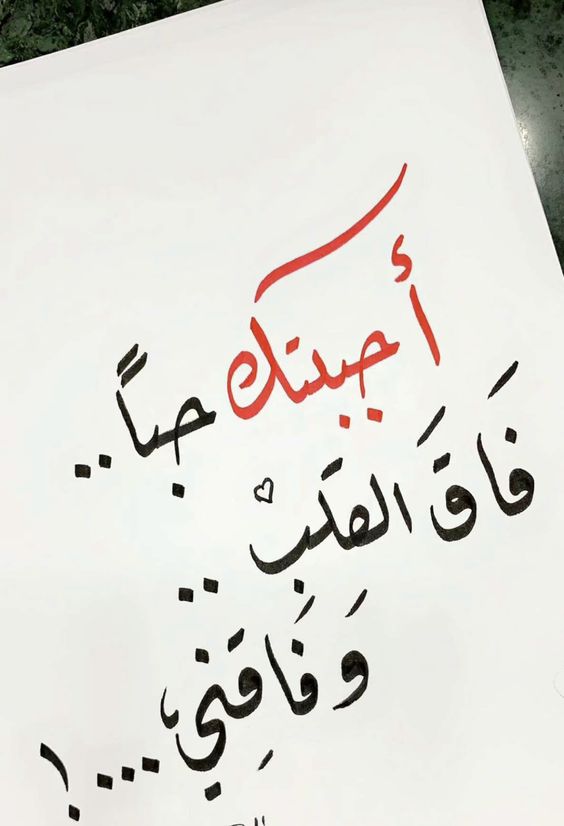 أحببتك حباً..
فَاقَ القلبْ ♡..
وَفَاقَِني،...!